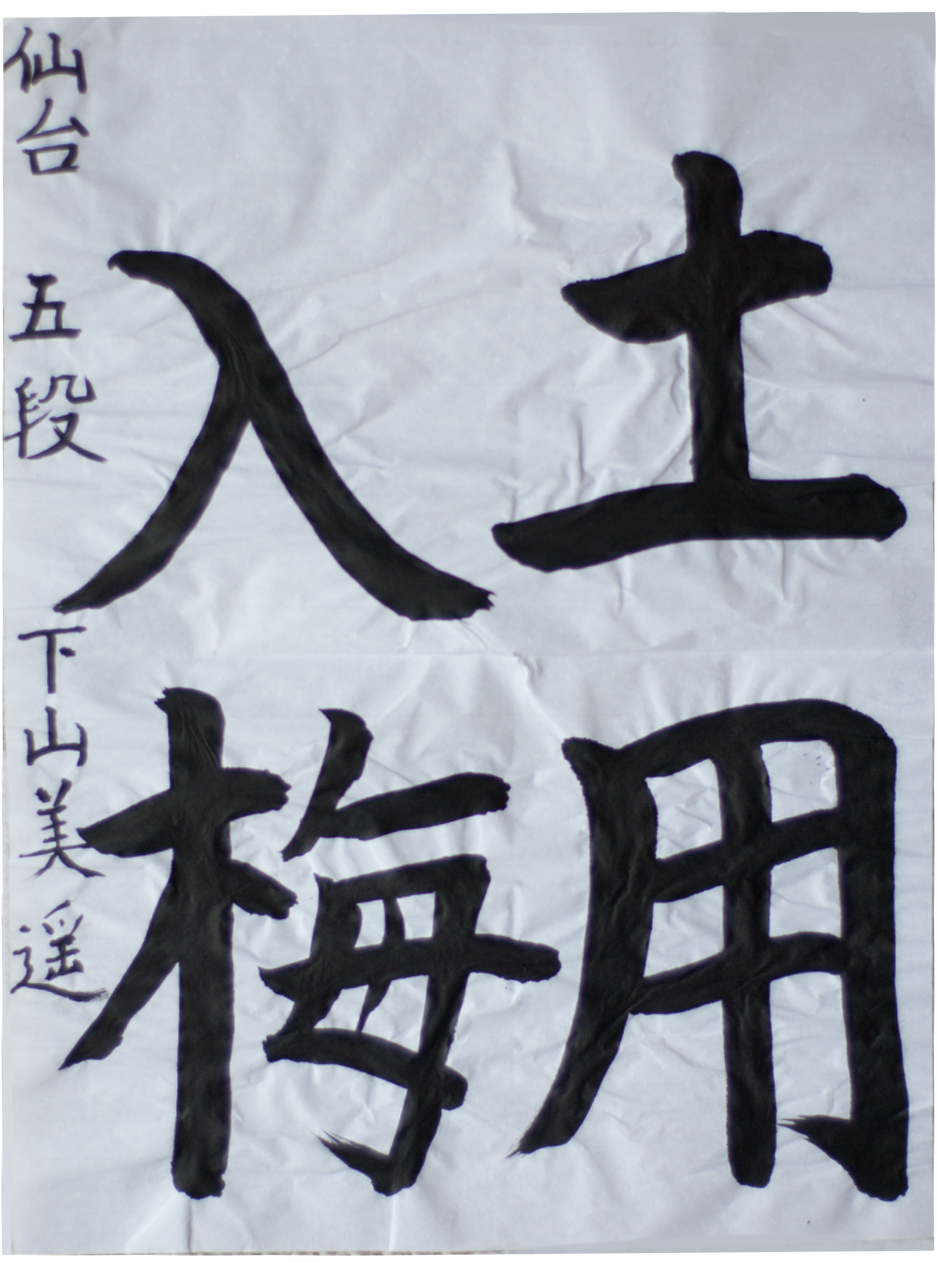 土用
入梅
仙台 五段 下山美遥